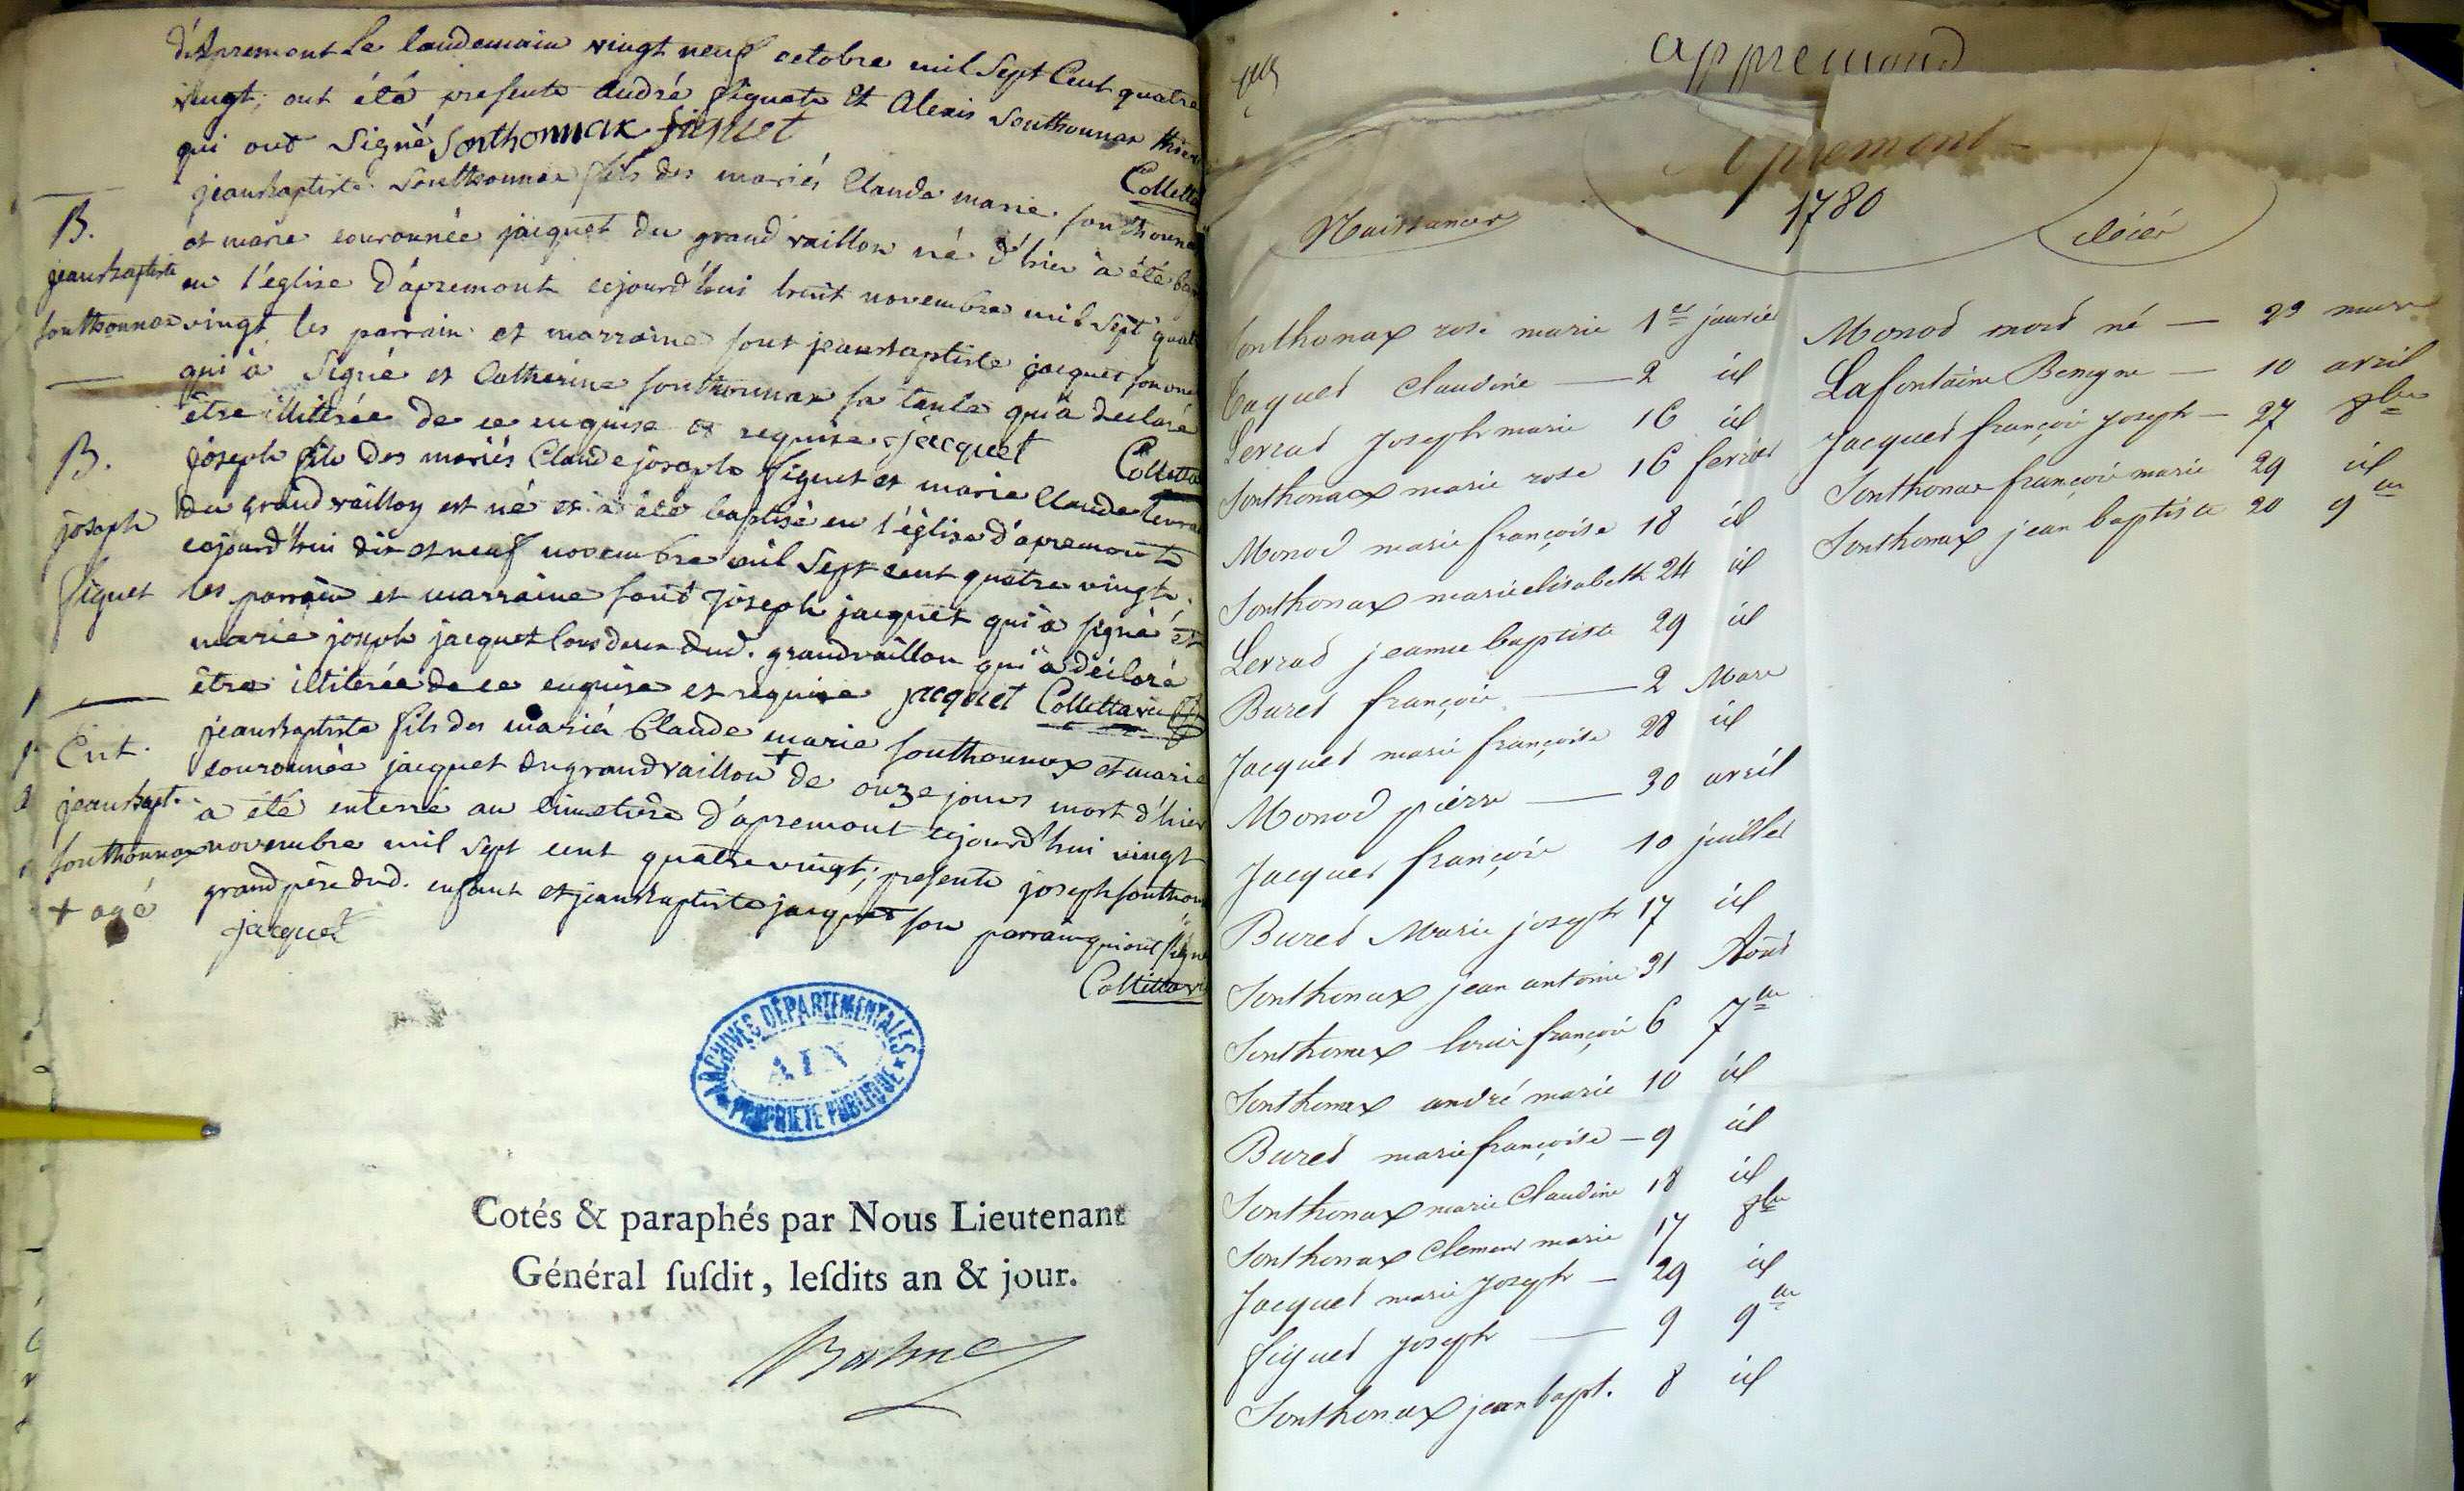 d'Apremont le landemain vingt neuf octobre mil Sept Cent quatre
vingt; ont été presents André figuet Et Alexis Sonthonnax
qui ont Signé Sonthonnax figuet
Colletta
B.
jeanbaptiste
sonthonnax
jeanbaptiste Sonthonnax fils des mariés Claude marie sonthonna
et marie couronnée jacquet du grand vaillon né d'hier à été bap
en l'église d'apremont cejourd'hui huit novembre mil Sept quatre
vingt, les parrain et marraine sont jeanbaptiste jacquet son onc
qui à Signé et Catherine sonthonnax sa tante qui à declaré
être illiterée de ce enquise et requise jacquet Colletta
B.
joseph
figuet
joseph fils des mariés Claude joseph figuet et marie Claude levra
du grand vaillon est né et à été baptisé en l'église d'apremont
cejourd'hui dix et neuf novembre mil Sept cent quatre vingt.
les parrain et marraine sont joseph jacquet qui à signé et
marie joseph jacquet tous deux dud. grandvaillon qui à déclaré
être illiterée de ce enquise et requise jacquet Collettavic
Ent.
jeanbapt.
sonthonnax
+ agé
jeanbaptiste fils des mariés Claude marie sonthonnax et marie
couronnée jacquet du grandvaillon + de onze jours mort d'hier
a été enterré au cimetiere d'apremont cejourd'hui vingt
novembre mil Sept cent quatre vingt; presents joseph sonthon
grand père dud. enfant et jeanbaptiste jacquet son parrain qui ont signé
jacquet
Collettavi
ARCHIVES DÉPARTEMENTALES
AIN
PROPRIETE PUBLIQUE
Cotés & paraphés par Nous Lieutenant
Général ſuſdit, leſdits an & jour.
appremond
Apremont
1780
Naissances
Sonthonax rose marie 1er janvier
Jaquet Claudine — 2 id
Levrad Joseph marie 16 id
Sonthonax marie rose 16 fevrier
Monod marie françoise 18 id
Sonthonax marie elisabeth 24 id
Levrad jeanne baptiste 29 id
Buret françois — 2 Mars
Jacquet marie françoise 28 id
Monod pierre — 30 avril
Jacquet françois 10 juillet
Buret Marie joseph 17 id
Sonthonax jean antoine 31 Aout
Sonthonax louis françois 6 7bre
Sonthonax andré marie 10 id
Buret marie françoise — 9 id
Sonthonax marie Claudine 18 id
Sonthonax Clement marie 17 8bre
Jacquet marie Joseph — 29 id
figuet joseph — 9 9bre
Sonthonax jean bapt. 8 id
décès
Monod mort né — 29 mars
Lafontaine Benigne — 10 avril
Jacquet françois joseph — 27 8bre
Sonthonax françois marie 29 id
Sonthonax jean baptiste 20 9bre